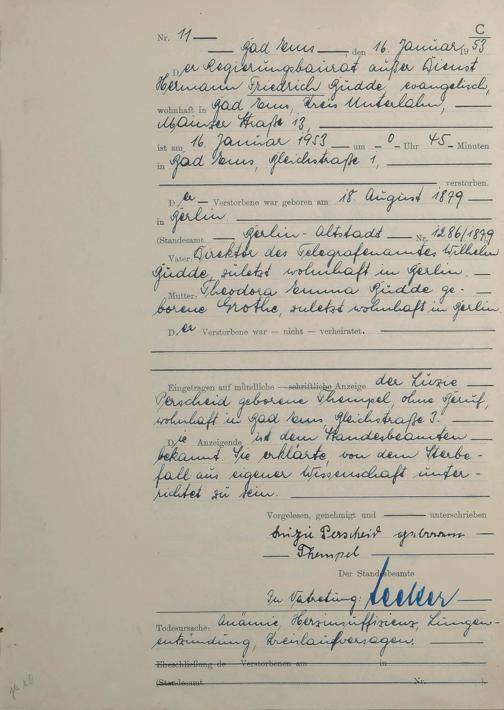 C
Nr. 11
Bad Ems, den 16. Januar 1953
Der Regierungsbaurat außer Dienst
Hermann Friedrich Gudde, evangelisch,
wohnhaft in Bad Ems, Kreis Unterlahn,
Mainzer Straße 13,
ist am 16. Januar 1953 um 0 Uhr 45 Minuten
in Bad Ems, Bleichstraße 1,
verstorben.
Der Verstorbene war geboren am 18. August 1879
in Berlin
(Standesamt Berlin-Altstadt Nr. 1286/1879
Vater: Direktor des Telegrafenamtes Wilhelm
Gudde, zuletzt wohnhaft in Berlin.
Mutter: Theodora Emma Gudde ge-
borene Grothe, zuletzt wohnhaft in Berlin
Der Verstorbene war — nicht — verheiratet.
Eingetragen auf mündliche — schriftliche — Anzeige der Luzie
Perscheid geborene Thempel, ohne Beruf,
wohnhaft in Bad Ems, Bleichstraße 3.
Die Anzeigende ist dem Standesbeamten
bekannt. Sie erklärte, von dem Sterbe-
fall aus eigener Wissenschaft unter-
richtet zu sein.
Vorgelesen, genehmigt und unterschrieben
Luzie Perscheid geborene
Thempel
Der Standesbeamte
In Vertretung:
Todesursache: Anämie, Herzinsuffizienz, Lungen-
entzündung, Kreislaufversagen.
Eheschließung de Verstorbenen am in
(Standesamt Nr. )